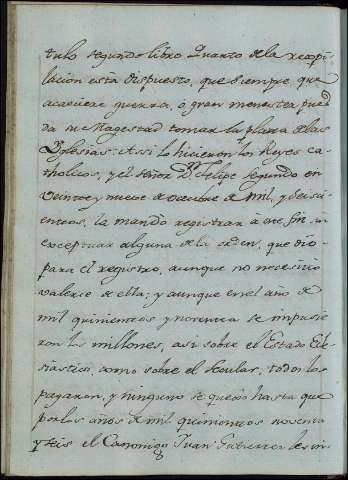 tulo segundo libro Quarto de la recopi
lacion esta dispuesto, que siempre que
acaeciere guerra, ô gran menester pue
da su Magestad tomar la plata de las
Yglesias: Assi lo hicieron los Reyes Ca
tholicos, y el señor D.n Felipe segundo en
veinte y nueve de octubre de mil, y seisi
entos, la mando registrar â este fin, sin
exceptuar alguna de la orden, que dio
para el registro, aunque no necesitò
valerse de ella; y aunque en el año de
mil quinientos y noventa se impusie
ron los millones, asi sobre el Estado Ecle
siastico, como sobre el secular, todos los
pagaron, y ninguno se quejò hasta que
por los años de mil quinientos noventa
y seis el Canonigo Juan Gutierrez